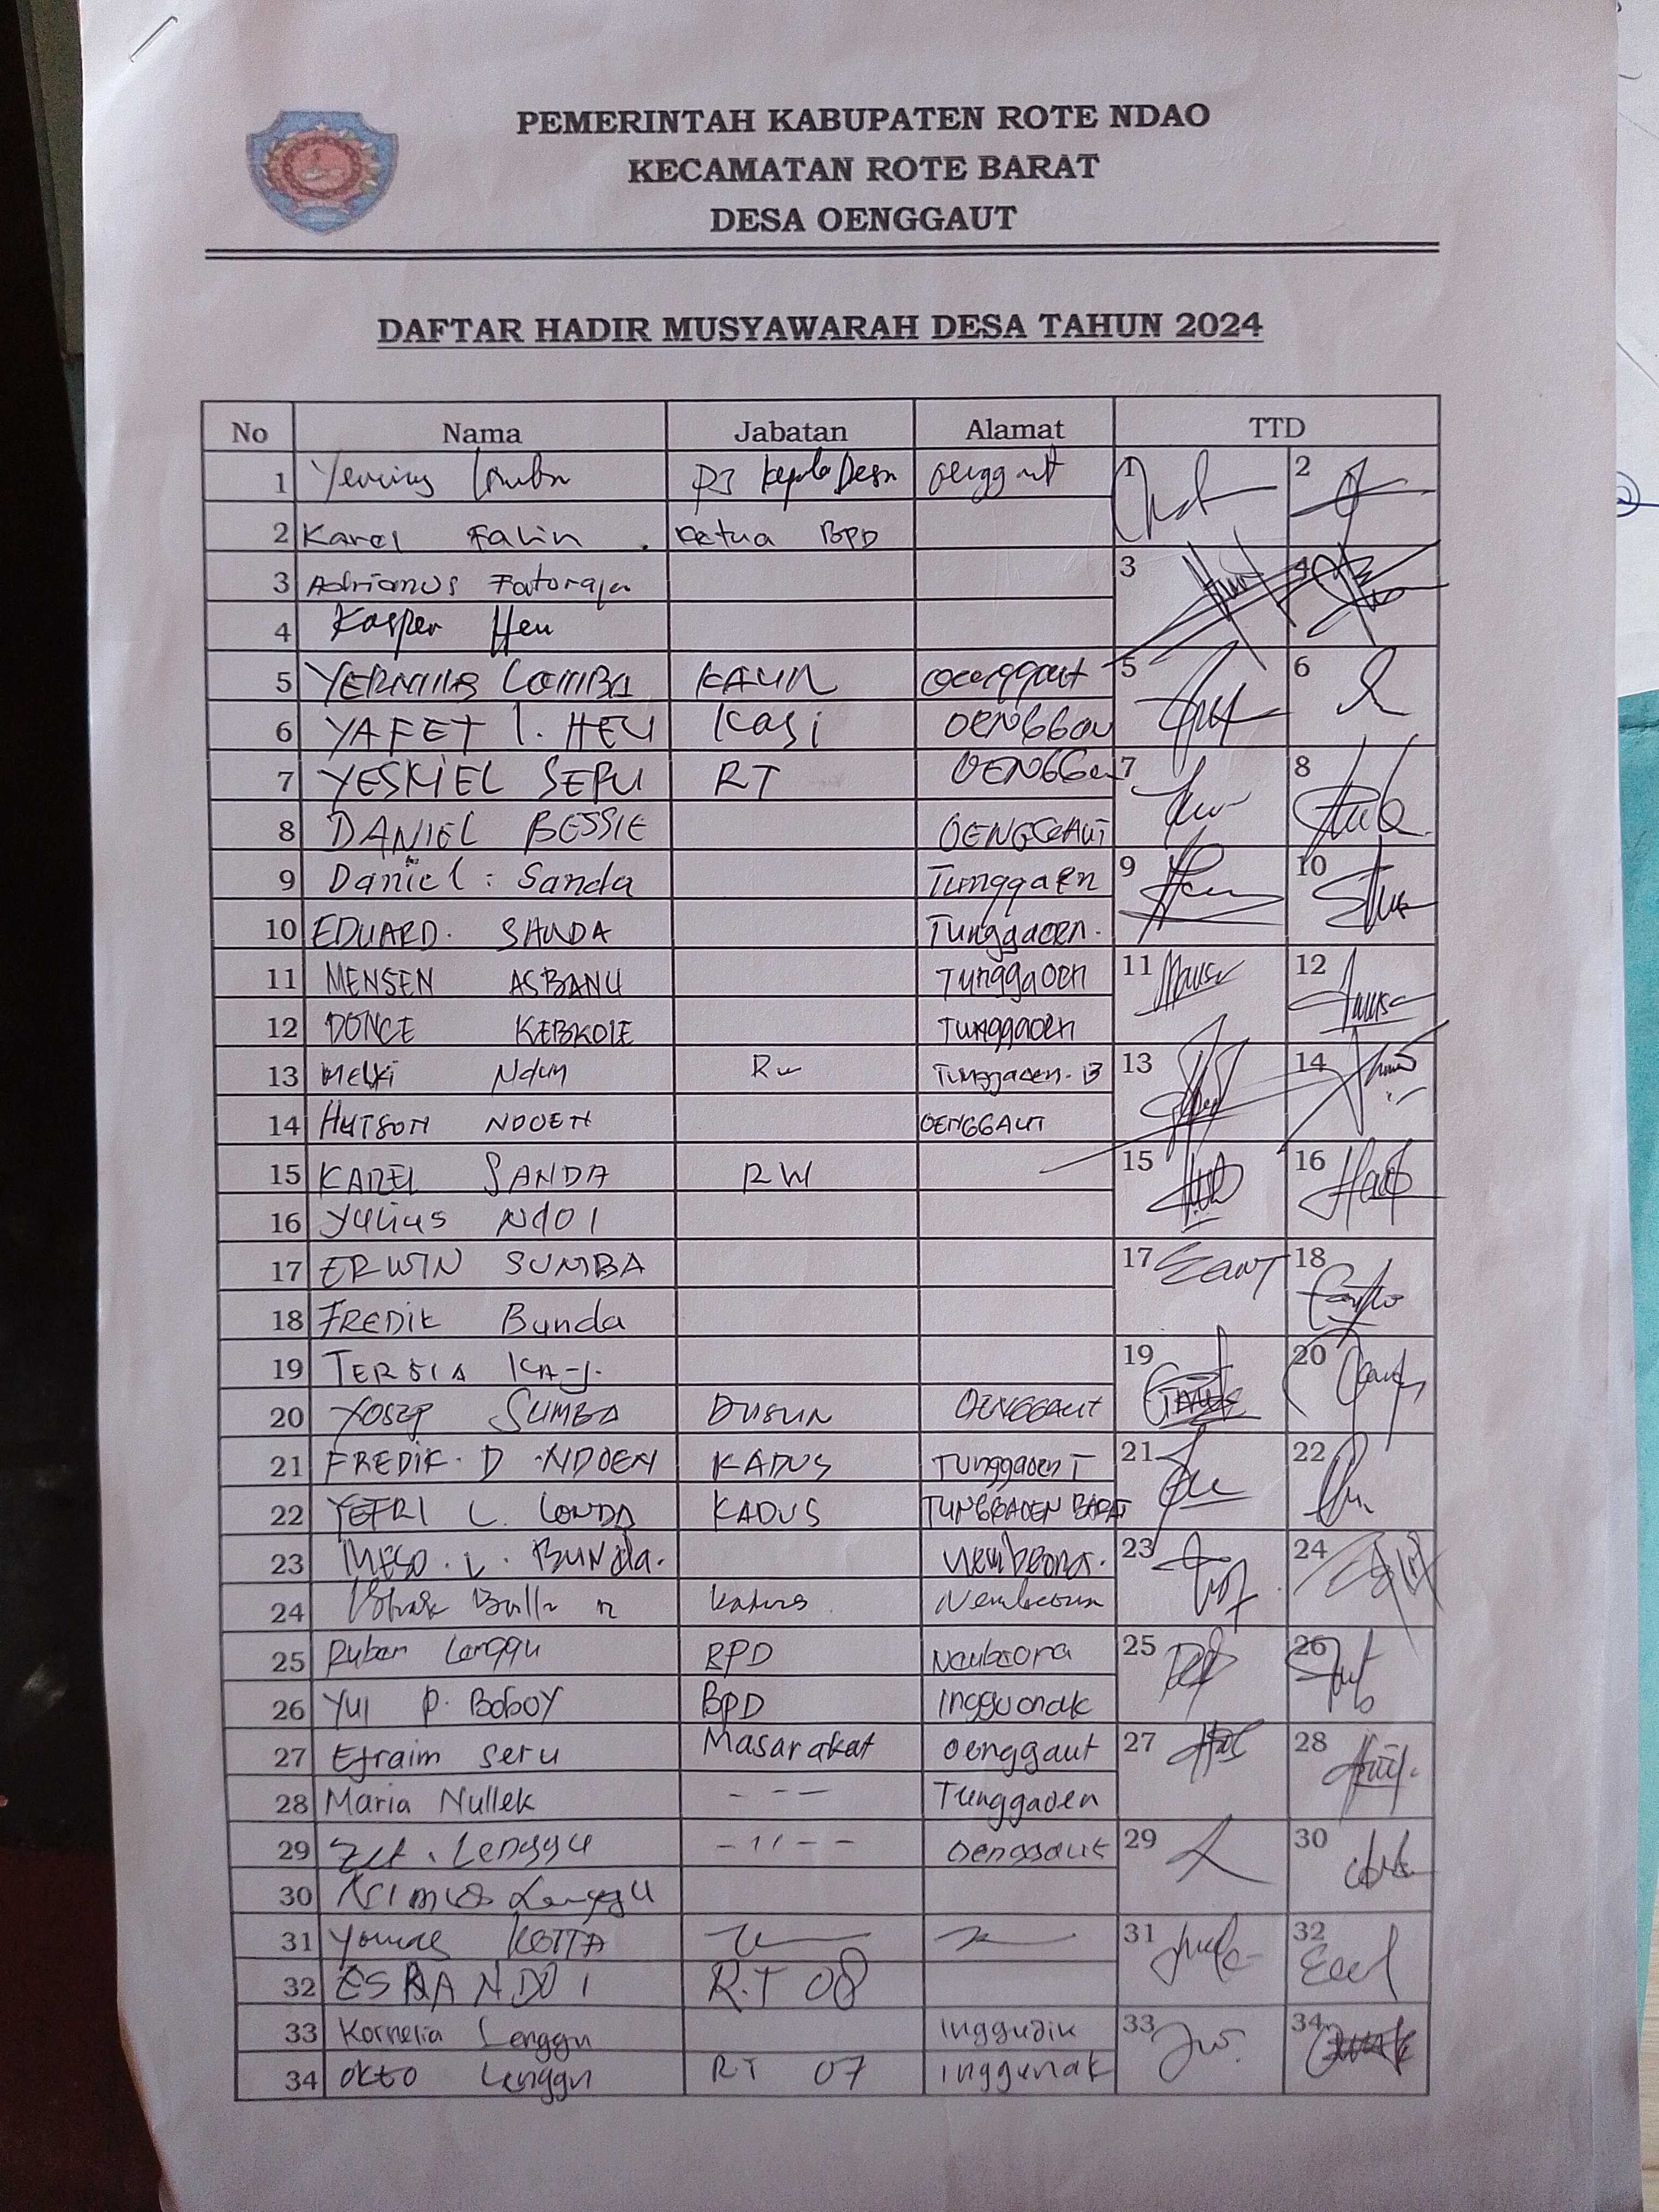 PEMERINTAH KABUPATEN ROTE NDAO
KECAMATAN ROTE BARAT
DESA OENGGAUT
DAFTAR HADIR MUSYAWARAH DESA TAHUN 2024
No Nama Jabatan Alamat TTD
1 PJ Kepala Desa Oenggaut 1 2
2 Karel Falin Ketua BPD
3 Adrianus 3 4
4 Kasper Heu
5 KAUR Oenggaut 5 6
6 YAFET L. HEU Kasi
7 YESKIEL SERU RT 7 8
8 DANIEL BESSIE OENGGAUT
9 Daniel Sanda Tunggaoen 9 10
10 EDUARD. SANDA Tunggaoen.
11 MENSEN ASBANU Tunggaoen 11 12
12 DONCE KEBKOLE Tunggaoen
13 Melki Ndun RW Tunggaoen. B 13 14
14 HUTSON NDOEN OENGGAUT
15 KAREL SANDA RW 15 16
16 Yulius NdOI
17 ERWIN SUMBA 17 18
18 FREDIK Bunda
19 TERSIA 19 20
20 YOSEP SUMBA DUSUN OENGGAUT
21 FREDIK. D. NDOEN KADUS Tunggaoen T 21 22
22 YEFRI L. LONDA KADUS TUNGGAOEN BARAT
23 L. BUNda. 23 24
24 Kadus
25 Ruben Lenggu BPD 25 26
26 Yul P. Boboy BPD Inggunak
27 Efraim Seru Masarakat Oenggaut 27 28
28 Maria Nullek - - - Tunggaoen
29 Lenggu - 11 - - Oenggaut 29 30
30 Lenggu
31 KOTTA 31 32
32 ESRA NDOI R.T 08
33 Kornelia Lenggu 33 34
34 Okto Lenggu RT 07 Inggunak